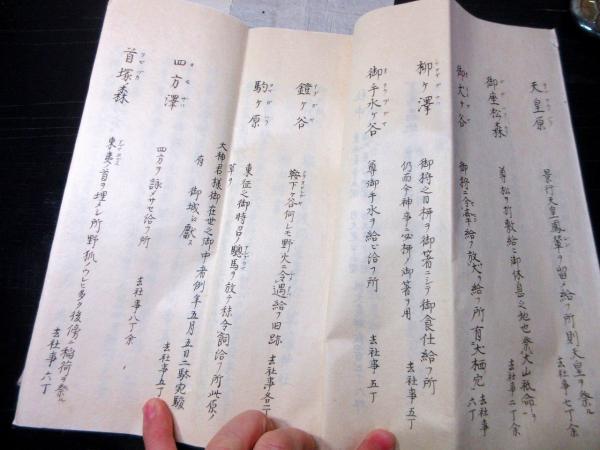 天皇原
景行天皇鳳輦ヲ留メ給フ所則天皇ヲ祭ル
去社事七丁余
御座松森
尊松ヲ打敷給ヒ御休息之地也祭大山祇命ヲ
去社事二丁余
御犬ヶ谷
御狩ニ令牽給フ放犬ヲ給フ所有犬栖穴
去社事六丁
柳ヶ澤
御狩之日柳ヲ御箸ニシテ御食仕給フ所
仍而今神事ニ必柳ノ御箸ヲ用
去社事五丁
御手水ヶ谷
尊御手水ヲ給ヒ給フ所
去社事五丁
鐙ヶ谷
鞍下ヶ谷何レモ野火ニ令遇給フ旧跡
去社事各二丁
駒ヶ原
東征之御時呂驄馬ヲ放チ秣令飼給フ所此原ノ
草ヲ
大神君様御在世之御中者例年五月五日二駄宛駿
府
御城江献ス
去社事五丁
四方澤
四方ヲ詠メサセ給フ所
去社事八丁余
首塚森
東夷ノ首ヲ埋シ所野狐
多ク後傍ニ稲荷ヲ祭ル
去社事六丁